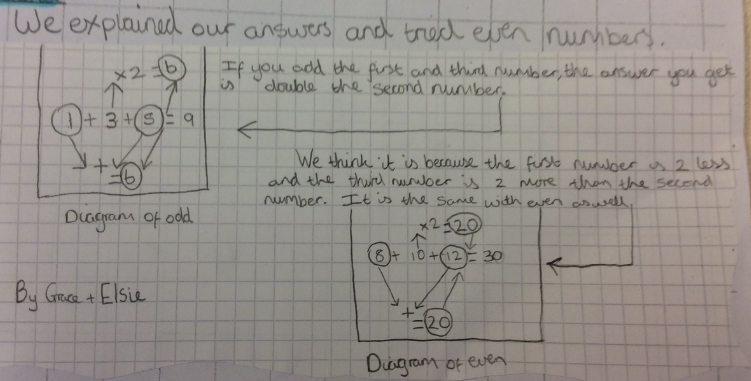 We explained our answers and tried even numbers.
×2 = 6
1 + 3 + 5 = 9
+
= 6
Diagram of odd
If you add the first and third number, the answer you get
is double the second number.
We think it is because the first number is 2 less
and the third number is 2 more than the second
number. It is the same with even aswell,
×2 = 20
8 + 10 + 12 = 30
+
= 20
Diagram of even
By Grace + Elsie